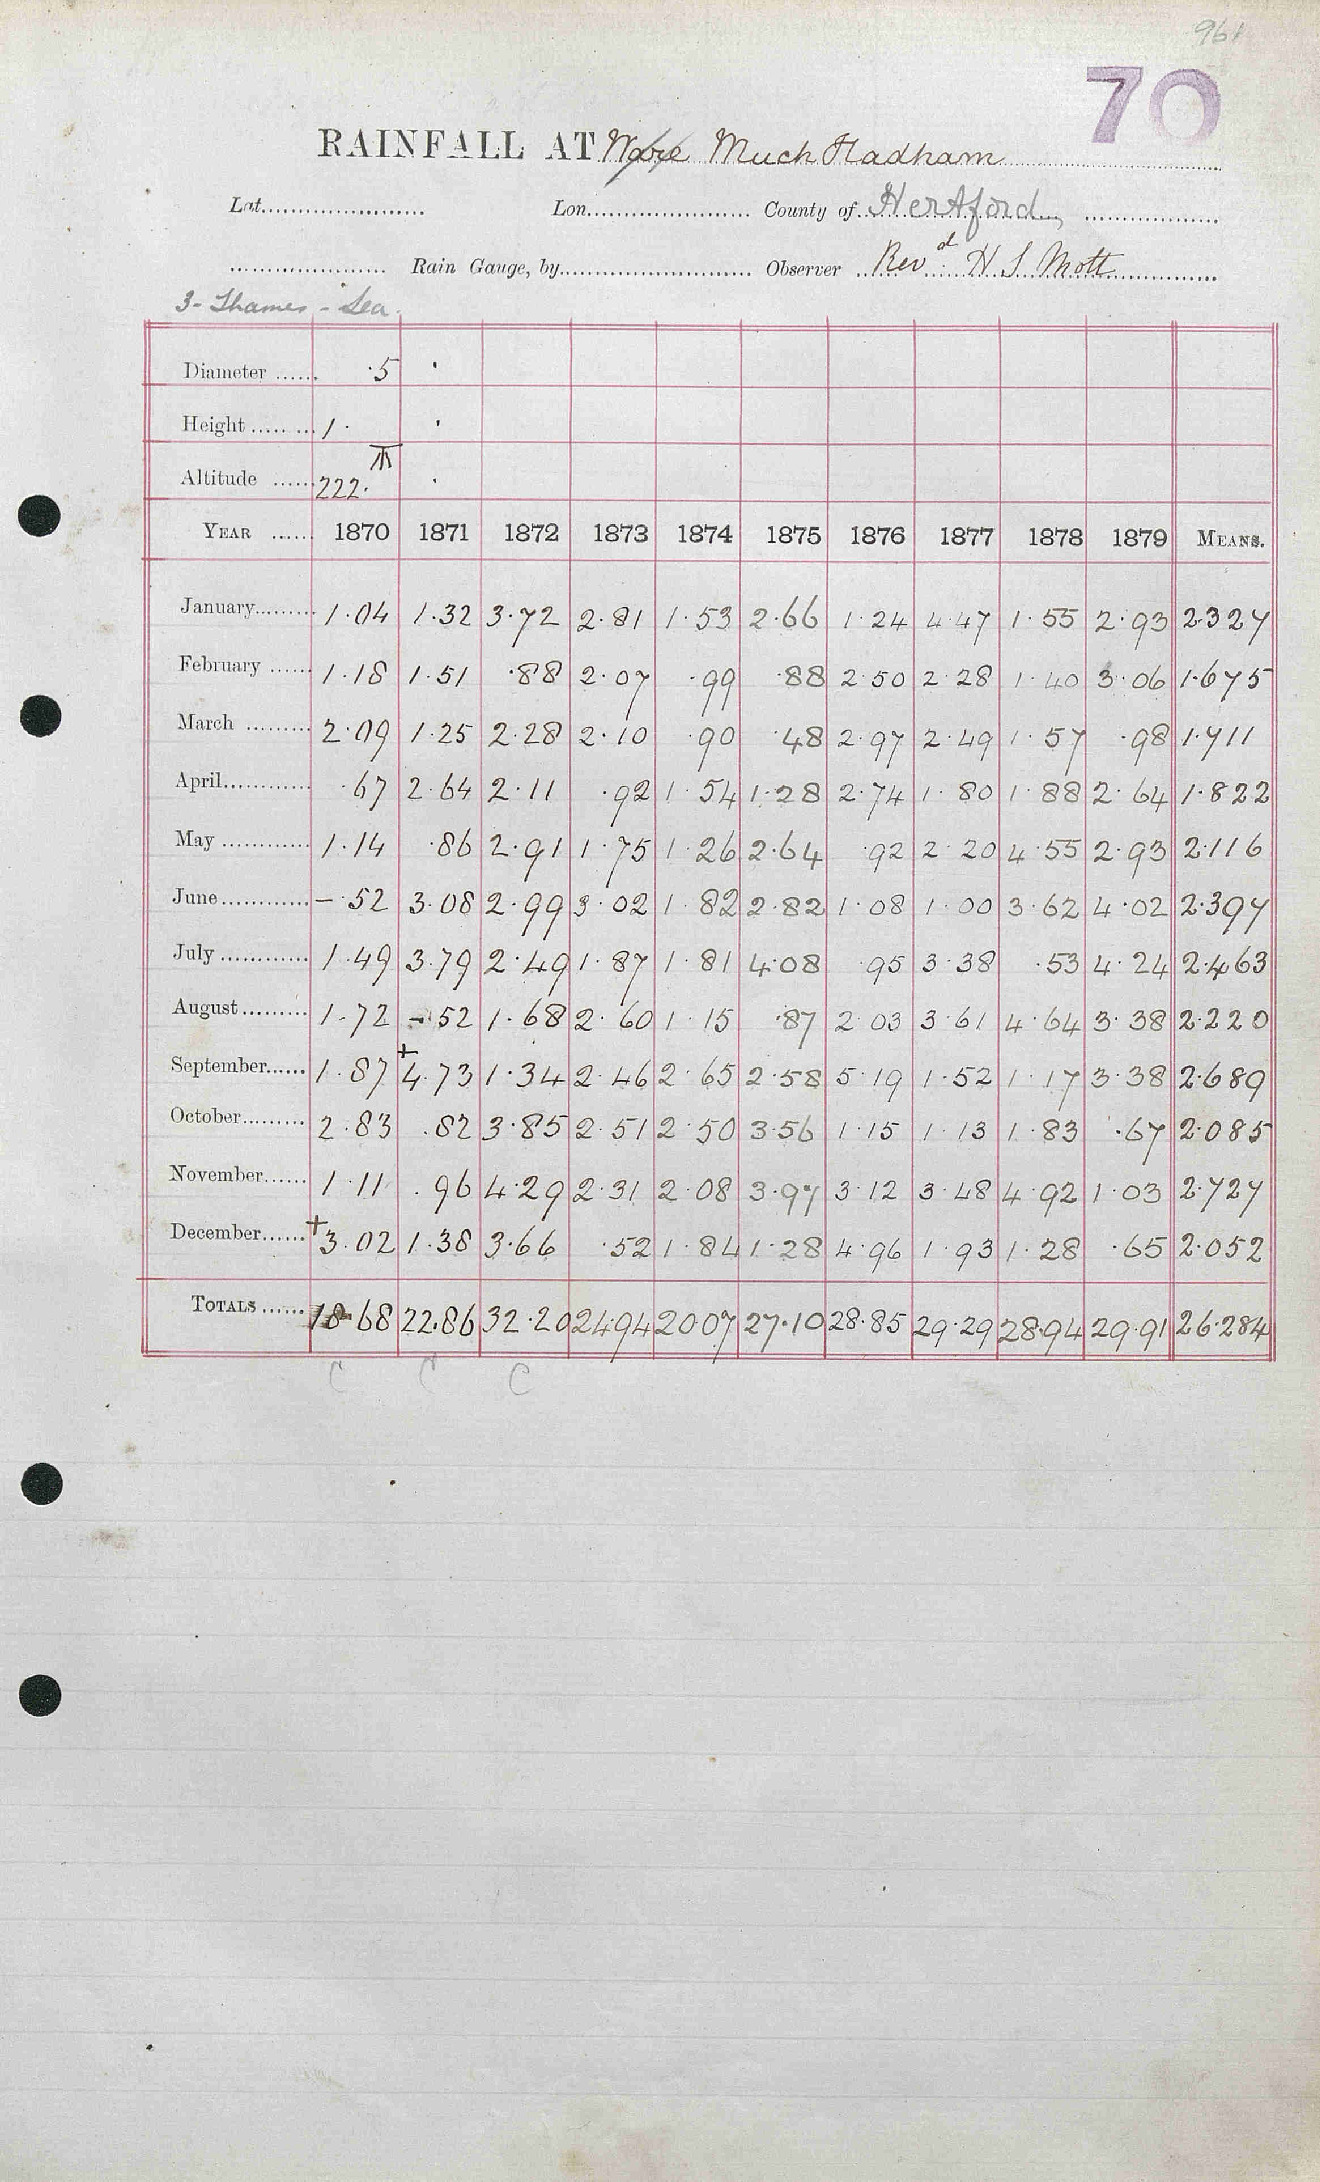 961
70
RAINFALL AT Ware Much Hadham
Lat. Lon. County of Hertford
Rain Gauge, by Observer Revd. H S Mott
3 - Thames - Lea.
Diameter ·5 ·
Height 1· ·
Altitude 222· ·
YEAR 1870 1871 1872 1873 1874 1875 1876 1877 1878 1879 MEANS.
January 1·04 1·32 3·72 2·81 1·53 2·66 1·24 4·47 1·55 2·93 2·327
February 1·18 1·51 ·88 2·07 ·99 ·88 2·50 2·28 1·40 3·06 1·675
March 2·09 1·25 2·28 2·10 ·90 ·48 2·97 2·49 1·57 ·98 1·711
April ·67 2·64 2·11 ·92 1·54 1·28 2·74 1·80 1·88 2·64 1·822
May 1·14 ·86 2·91 1·75 1·26 2·64 ·92 2·20 4·55 2·93 2·116
June –·52 3·08 2·99 3·02 1·82 2·82 1·08 1·00 3·62 4·02 2·397
July 1·49 3·79 2·49 1·87 1·81 4·08 ·95 3·38 ·53 4·24 2·463
August 1·72 –·52 1·68 2·60 1·15 ·87 2·03 3·61 4·64 3·38 2·220
September 1·87 +4·73 1·34 2·46 2·65 2·58 5·19 1·52 1·17 3·38 2·689
October 2·83 ·82 3·85 2·51 2·50 3·56 1·15 1·13 1·83 ·67 2·085
November 1·11 ·96 4·29 2·31 2·08 3·97 3·12 3·48 4·92 1·03 2·727
December +3·02 1·38 3·66 ·52 1·84 1·28 4·96 1·93 1·28 ·65 2·052
TOTALS 18·68 22.86 32·20 24·94 20·07 27·10 28·85 29·29 28·94 29·91 26·284
C C C